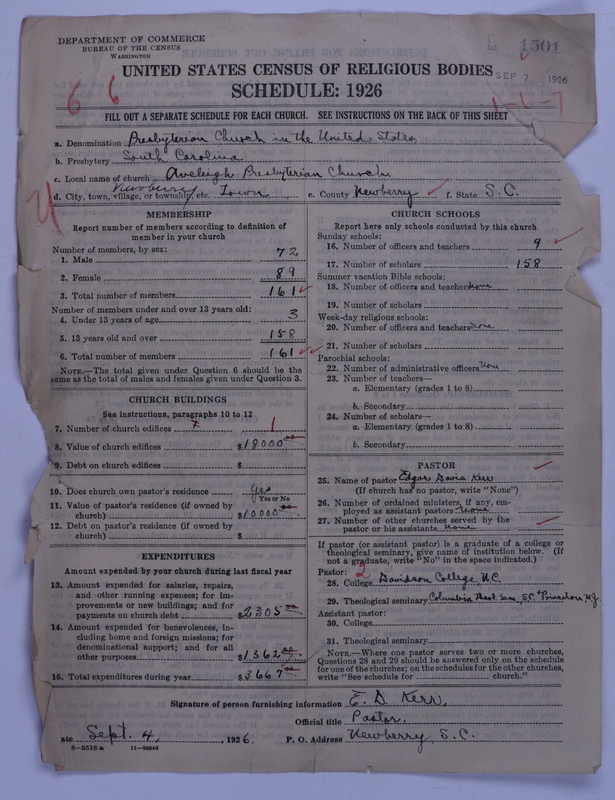 DEPARTMENT OF COMMERCE
BUREAU OF THE CENSUS
WASHINGTON
1501
UNITED STATES CENSUS OF RELIGIOUS BODIES
SEP 7 1926
SCHEDULE: 1926
66
1-6-7
FILL OUT A SEPARATE SCHEDULE FOR EACH CHURCH. SEE INSTRUCTIONS ON THE BACK OF THIS SHEET
a. Denomination Presbyterian Church in the United States
b. Presbytery South Carolina
c. Local name of church Aveleigh Presbyterian Church
d. City, town, village, or township, etc. Newberry Town e. County Newberry f. State S. C.
MEMBERSHIP
Report number of members according to definition of member in your church
Number of members, by sex:
1. Male 72
2. Female 89
3. Total number of members 161
Number of members under and over 13 years old:
4. Under 13 years of age 3
5. 13 years old and over 158
6. Total number of members 161
NOTE.—The total given under Question 6 should be
same as the total of males and females given under Question 3.
CHURCH BUILDINGS
See instructions, paragraphs 10 to 12
7. Number of church edifices 1
8. Value of church edifices $18000 00
9. Debt on church edifices $
10. Does church own pastor's residence yes
Yes or No
11. Value of pastor's residence (if owned by
church) $10000
12. Debt on pastor's residence (if owned by
church) $
EXPENDITURES
Amount expended by your church during last fiscal year
13. Amount expended for salaries, repairs,
and other running expenses; for im-
provements or new buildings; and for
payments on church debt $2305 00
14. Amount expended for benevolences, in-
cluding home and foreign missions; for
denominational support; and for all
other purposes $1362 00
15. Total expenditures during year $3667 00
CHURCH SCHOOLS
Report here only schools conducted by this church
Sunday schools:
16. Number of officers and teachers 9
17. Number of scholars 158
Summer vacation Bible schools:
18. Number of officers and teachers None
19. Number of scholars
Week-day religious schools:
20. Number of officers and teachers None
21. Number of scholars
Parochial schools:
22. Number of administrative officers None
23. Number of teachers—
a. Elementary (grades 1 to 8)
b. Secondary
24. Number of scholars—
a. Elementary (grades 1 to 8)
b. Secondary
PASTOR
25. Name of pastor Edgar Davis Kerr
(If church has no pastor, write "None")
26. Number of ordained ministers, if any, em-
ployed as assistant pastors None
27. Number of other churches served by the
pastor or his assistants None
If pastor (or assistant pastor) is a graduate of a college or
theological seminary, give name of institution below. (If
not a graduate, write "No" in the space indicated.)
Pastor: 2
28. College Davidson College, N.C.
29. Theological seminary Columbia Sem, S.C. Princeton, N.J.
Assistant pastor:
30. College
31. Theological seminary
NOTE.—Where one pastor serves two or more churches,
Questions 28 and 29 should be answered only on the schedule
for one of the churches; on the schedules for the other churches,
write "See schedule for church."
Signature of person furnishing information E. D. Kerr
Official title Pastor.
ate Sept. 4, 1926. P. O. Address Newberry, S.C.
8—5516 a